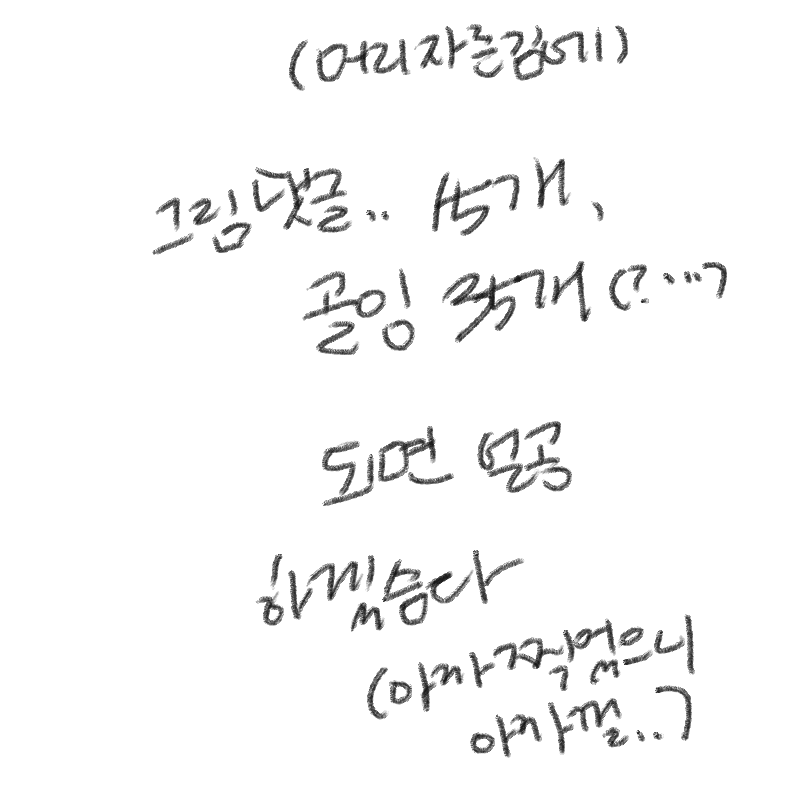 (머리자른김에)
그림댓글.. 15개,
골잉 각5개(?...)
되면 얼공
하겠슴다
(아까찍었으니
아까껄..)